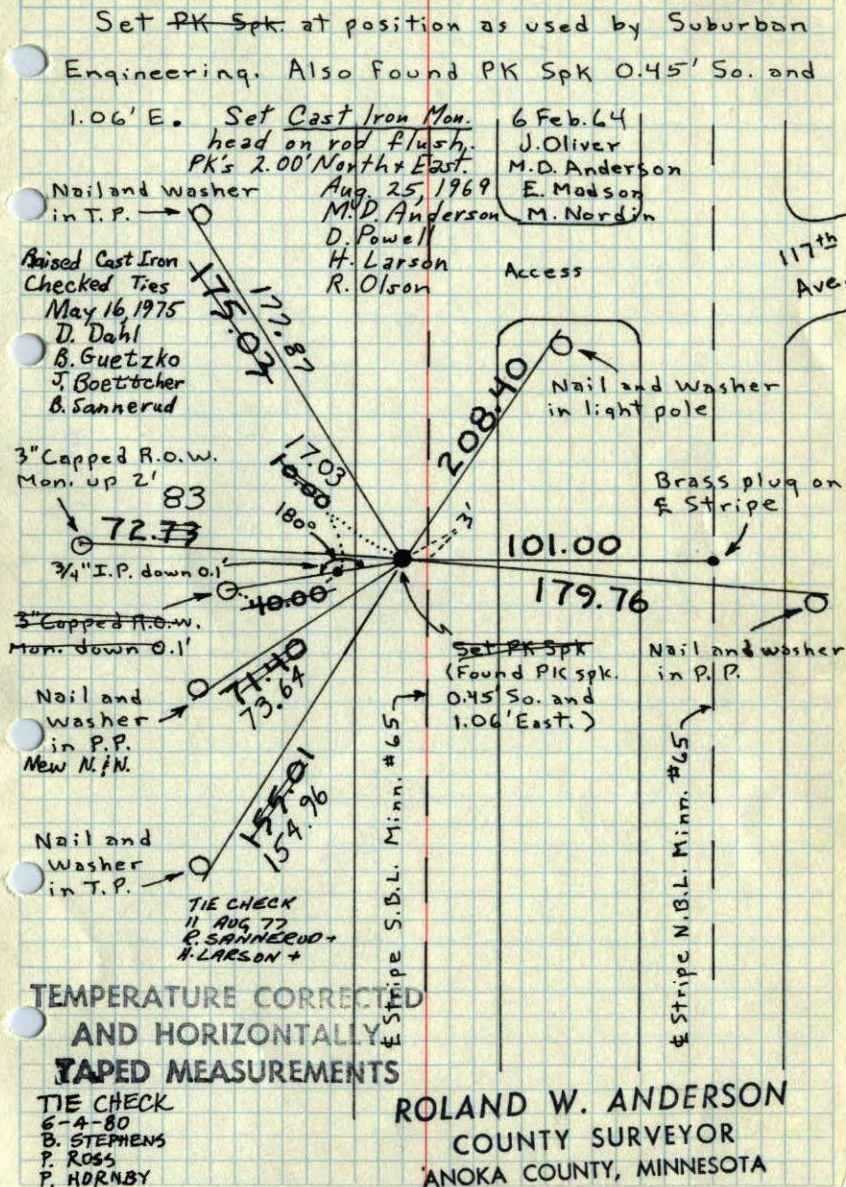 Set PK Spk. at position as used by Suburban
Engineering. Also Found PK Spk 0.45' So. and
1.06' E.
Set Cast Iron Mon.
head on rod flush.
PK's 2.00' North & East.
Aug. 25, 1969
M.D. Anderson
D. Powell
H. Larson
R. Olson
6 Feb. 64
J. Oliver
M.D. Anderson
E. Madson
M. Nordin
Nail and Washer
in T.P.
Raised Cast Iron
Checked Ties
May 16, 1975
D. Dahl
B. Guetzko
J. Boettcher
B. Sannerud
177.87
175.07
Access
117th
Ave.
208.40
Nail and Washer
in light pole
3" Capped R.O.W.
Mon. up 2'
83
72.73
17.03
10.00
180°
3'
Brass plug on
℄ Stripe
101.00
179.76
3/4" I.P. down 0.1'
40.00
3" Capped R.O.W.
Mon. down 0.1'
71.40
73.64
Set PK Spk
(Found PK spk.
0.45' So. and
1.06' East.)
Nail and washer
in P.P.
Nail and
Washer
in P.P.
New N.&N.
155.01
154.96
Nail and
Washer
in T.P.
TIE CHECK
11 AUG 77
R. SANNERUD +
H. LARSON +
℄ Stripe S.B.L. Minn. #65
℄ Stripe N.B.L. Minn. #65
TEMPERATURE CORRECTED
AND HORIZONTALLY
TAPED MEASUREMENTS
TIE CHECK
6-4-80
B. STEPHENS
P. ROSS
P. HORNBY
ROLAND W. ANDERSON
COUNTY SURVEYOR
ANOKA COUNTY, MINNESOTA